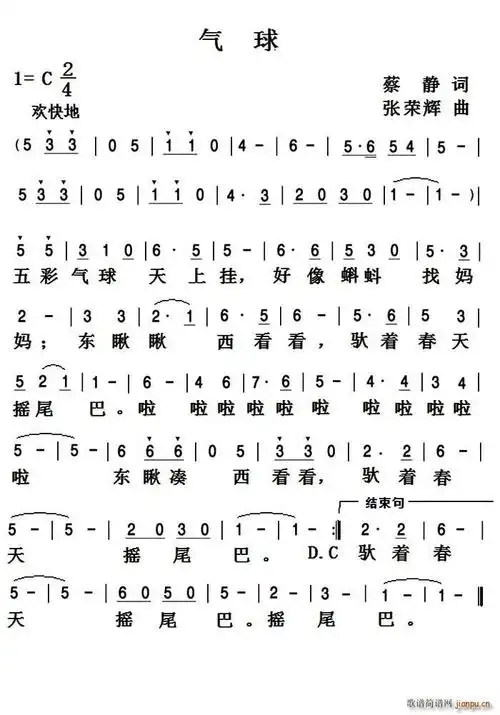 气 球
1= C 2/4
蔡 静 词
欢快地
张荣辉 曲
( 5 3 3 | 0 5 | 1 1 0 | 4 - | 6 - | 5 · 6 5 4 | 5 - |
5 3 3 | 0 5 | 1 1 0 | 4 · 3 | 2 0 3 0 | 1 - | 1 - ) |
5 5 | 3 1 0 | 6 · 5 | 5 - | 6 · 6 | 5 3 0 | 5 · 3 |
五 彩 气 球 天 上 挂，好 像 蝌 蚪 找 妈
2 - | 3 3 | 2 · 1 | 6 · 5 | 1 - | 4 · 3 | 1 6 |
妈； 东 瞅 瞅 西 看 看，驮 着 春 天
5 2 1 | 1 - | 6 - | 4 6 | 7 · 6 | 5 3 | 2 4 |
摇 尾 巴。啦 啦 啦啦 啦 啦 啦啦 啦啦
5 - | 5 - | 6 6 6 | 0 5 | 3 3 0 | 2 · 2 | 6 |
啦 东 瞅凑 西 看看，驮 着 春
结束句
5 - | 5 - | 2 0 3 0 | 1 - | 1 - :‖ 2 · 2 | 6 |
天 摇 尾 巴。 D.C 驮 着 春
5 - | 5 - | 6 0 5 0 | 1 - | 5 - | 1 - | 1 - ‖
天 摇 尾 巴。摇 尾 巴。
歌谱简谱网
jianpu.cn